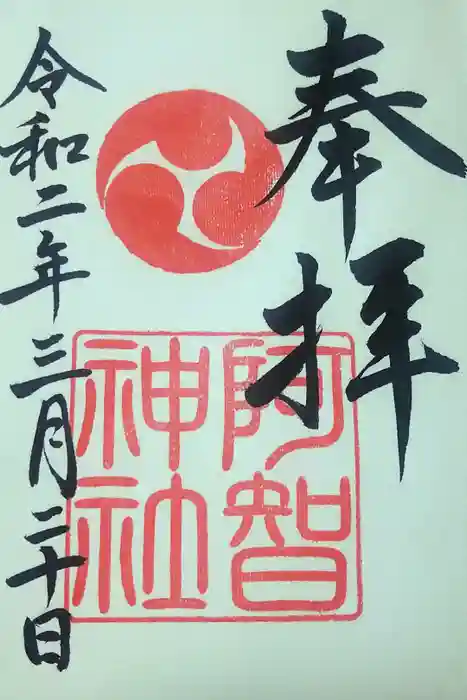 奉拝
阿智
神社
令和二年三月二十日